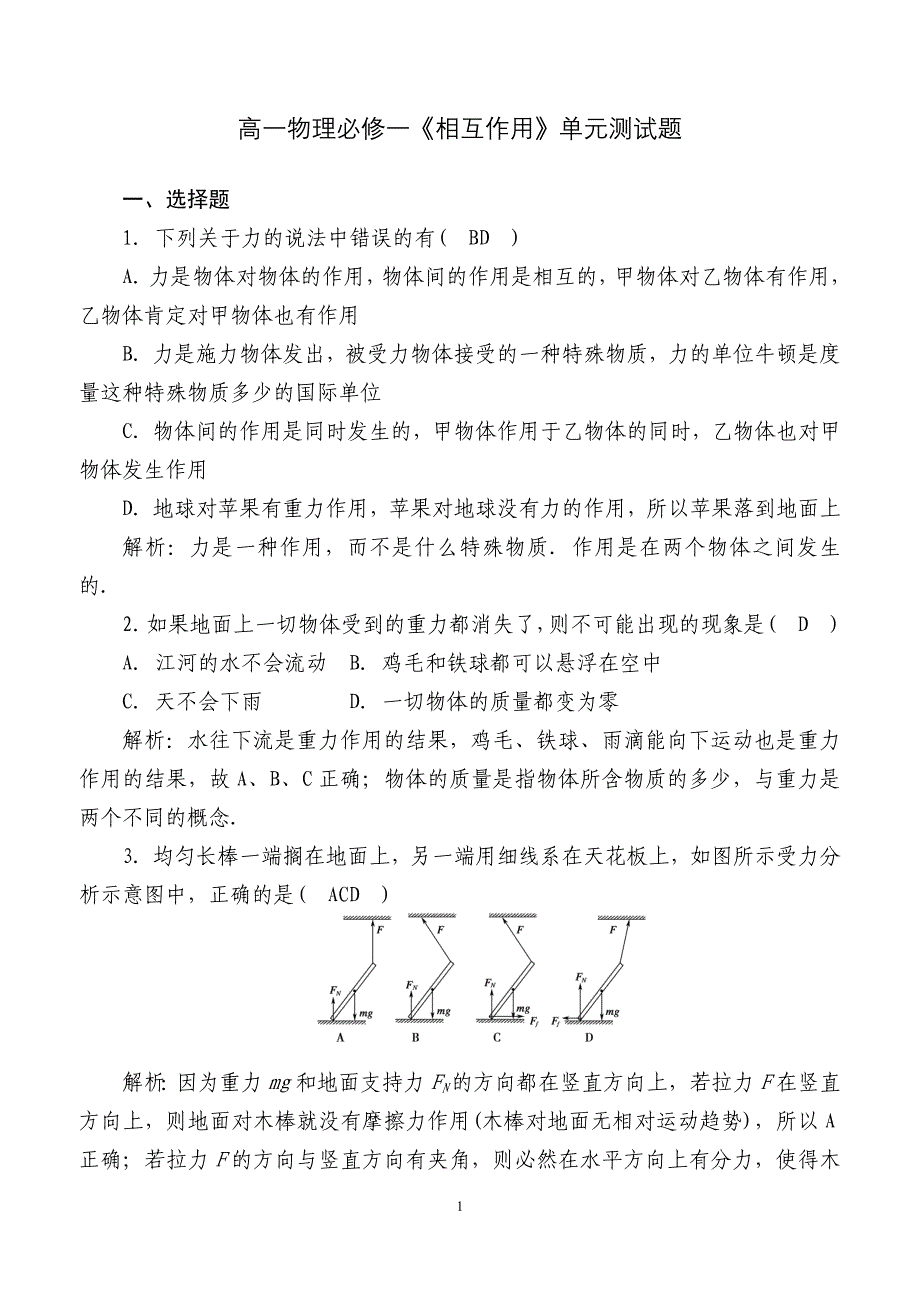 高一物理必修一《相互作用》单元测试题
一、选择题
1. 下列关于力的说法中错误的有( BD )
A. 力是物体对物体的作用,物体间的作用是相互的,甲物体对乙物体有作用,
乙物体肯定对甲物体也有作用
B. 力是施力物体发出，被受力物体接受的一种特殊物质，力的单位牛顿是度
量这种特殊物质多少的国际单位
C. 物体间的作用是同时发生的，甲物体作用于乙物体的同时，乙物体也对甲
物体发生作用
D. 地球对苹果有重力作用，苹果对地球没有力的作用，所以苹果落到地面上
解析：力是一种作用，而不是什么特殊物质. 作用是在两个物体之间发生
的.
2. 如果地面上一切物体受到的重力都消失了,则不可能出现的现象是( D )
A. 江河的水不会流动 B. 鸡毛和铁球都可以悬浮在空中
C. 天不会下雨 D. 一切物体的质量都变为零
解析：水往下流是重力作用的结果，鸡毛、铁球、雨滴能向下运动也是重力
作用的结果，故 A、B、C 正确；物体的质量是指物体所含物质的多少，与重力是
两个不同的概念.
3. 均匀长棒一端搁在地面上，另一端用细线系在天花板上，如图所示受力分
析示意图中，正确的是( ACD )
F F F F
FN FN FN FN
mg mg mg mg
Ff Ff
A B C D
解析：因为重力 mg 和地面支持力 FN 的方向都在竖直方向上，若拉力 F 在竖直
方向上，则地面对木棒就没有摩擦力作用(木棒对地面无相对运动趋势)，所以 A
正确；若拉力 F 的方向与竖直方向有夹角，则必然在水平方向上有分力，使得木
1